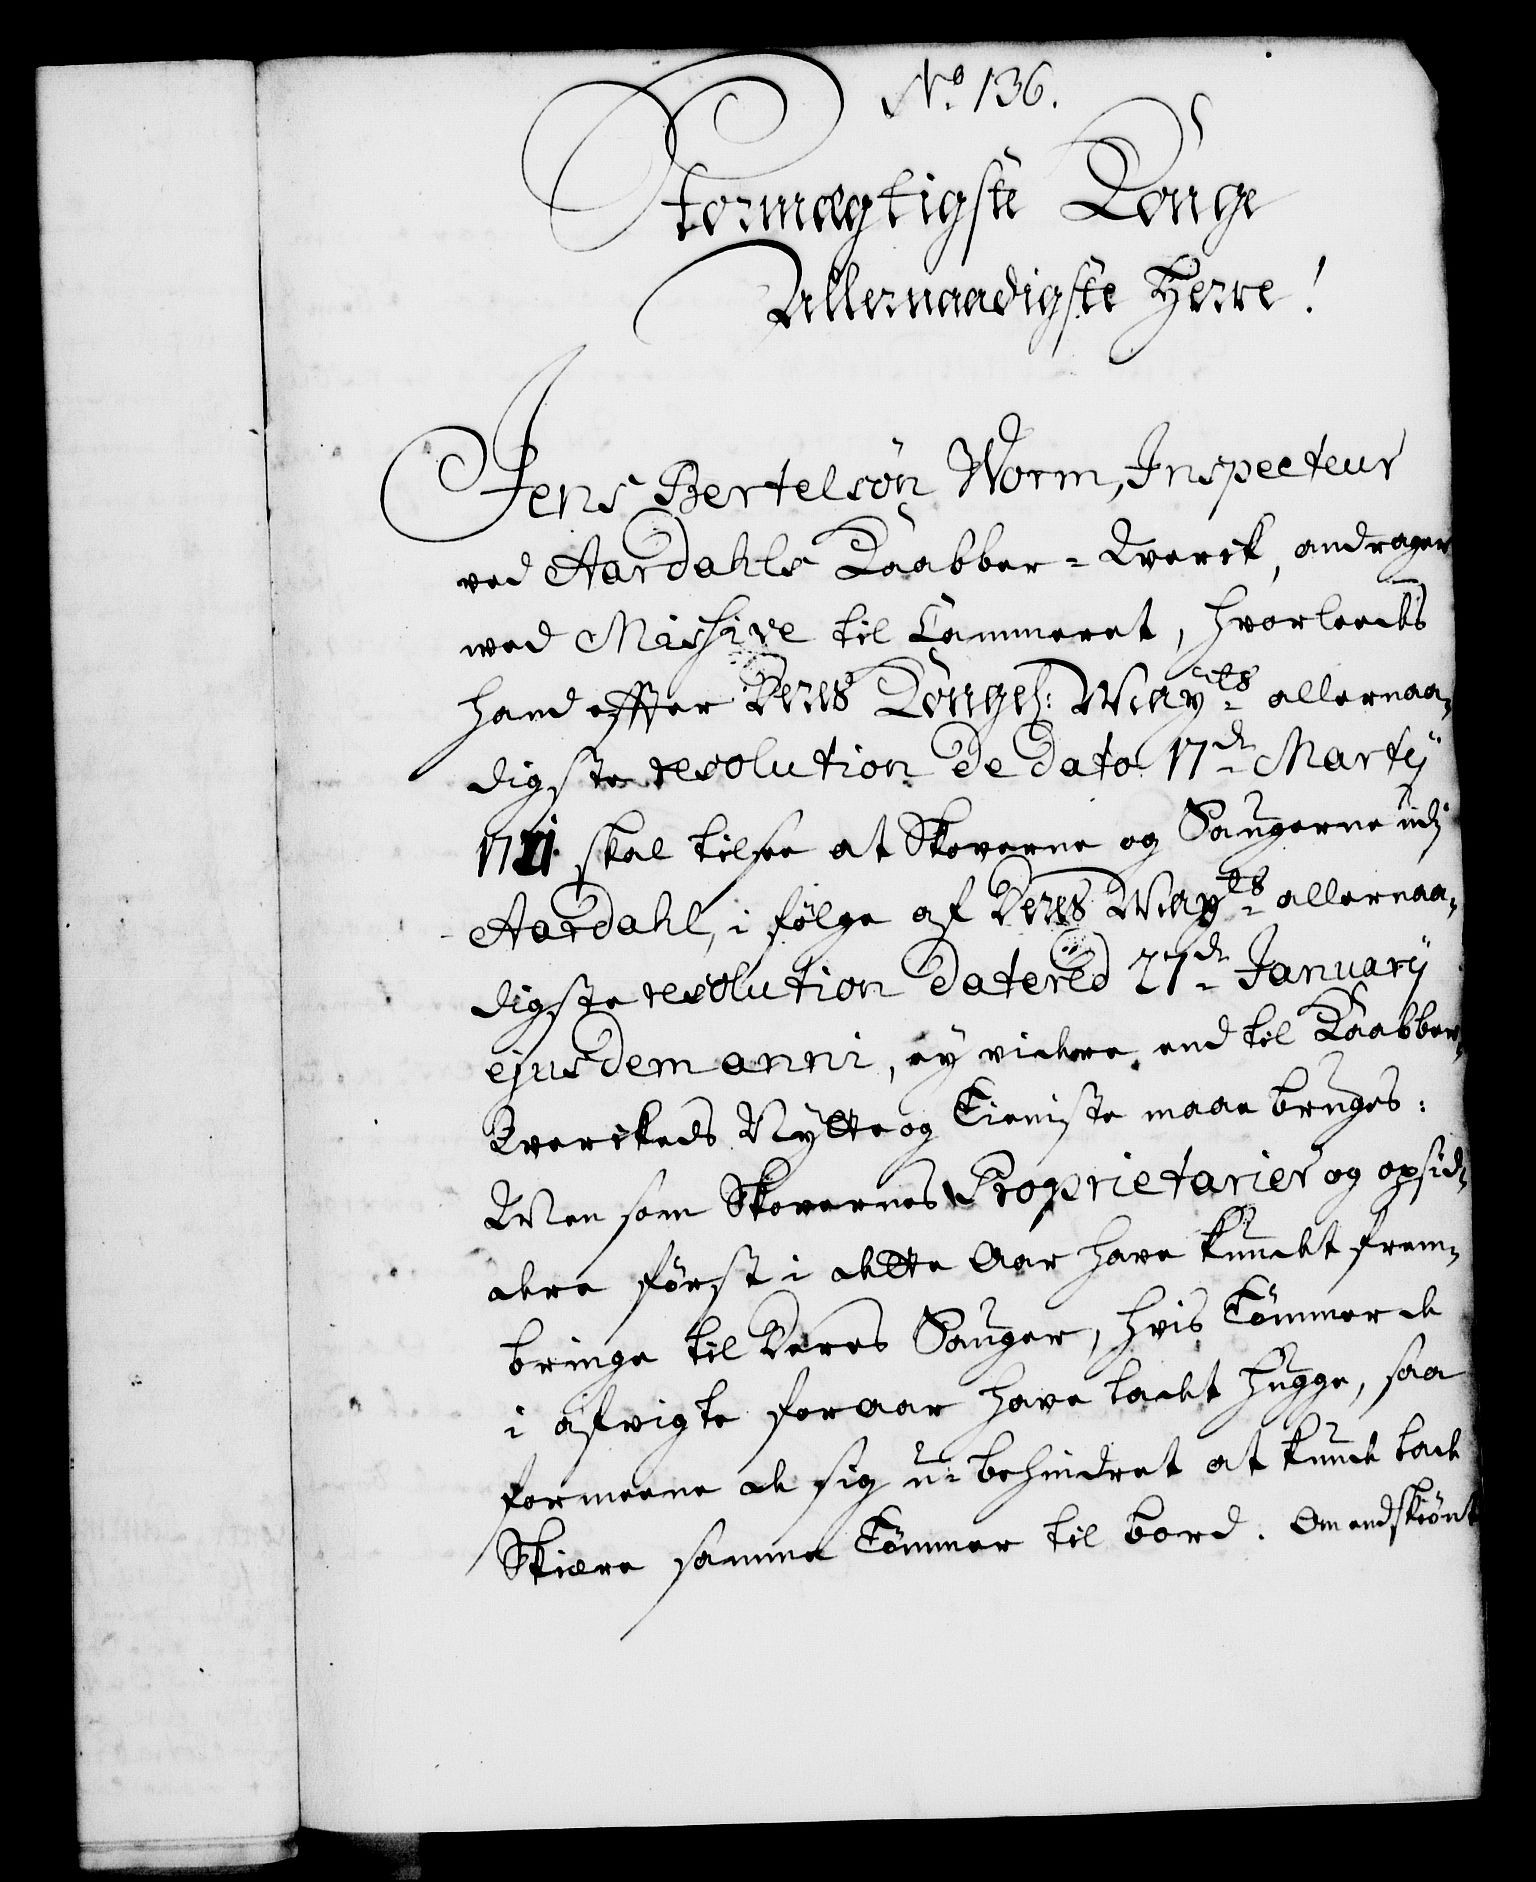 No. 136.
Stormægtigste Konge
Allernaadigste Herre!
Jens Bertelsön Worm, Inspecteur
ved Aardahls Kaabber-Kverck, andrager
med Missive til Cammeret, hvorleedes
hand efter Deres Kongel: Mayts allernaa-
digste resolution de dato 17de Martij
1711 skal tilsee at Skoverne og Saugerne udj
Aardahl, i følge af Deres Mayts allernaa-
digste resolution datered 27de Januarij
ejusdem anni, ey videre end til Kaabber-
Kverckeds Nytte og Tieniste maae bruges:
Men som Skovernes Proprietarier og opsid-
dere först i dette Aar have kundet frem-
bringe til Deres Sauger, hvis Tömmer de
i afvigte foraar have ladet hugge, saa
formeene de sig u-behindret at kunde lade
Skiære samme Tömmer til bord. Om endskiönt